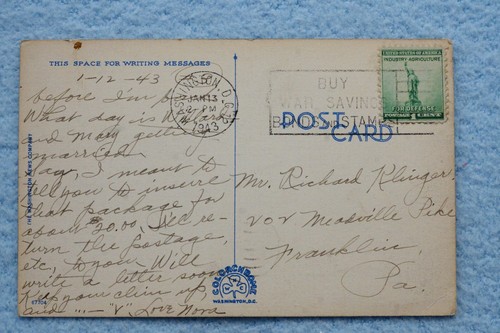 THIS SPACE FOR WRITING MESSAGES
1-12-43
before I'm
What day is
and Mary getting
married
Say, I meant to
tell you to insure
that package for
about 20.00. I'll re-
turn the postage,
etc, to you. Will
write a letter soon
Keep your chin up,
and "V" Love Nora
THE WASHINGTON NEWS COMPANY
WASHINGTON, D.C.
JAN 13
2 PM
1943
BUY
WAR SAVINGS
BONDS AND STAMPS
POST
CARD
UNITED STATES OF AMERICA
INDUSTRY AGRICULTURE
FOR DEFENSE
POSTAGE 1 CENT
Mr. Richard Klinger
202 Meadville Pike
Franklin,
Pa.
COLORCHROME
WASHINGTON, D.C.